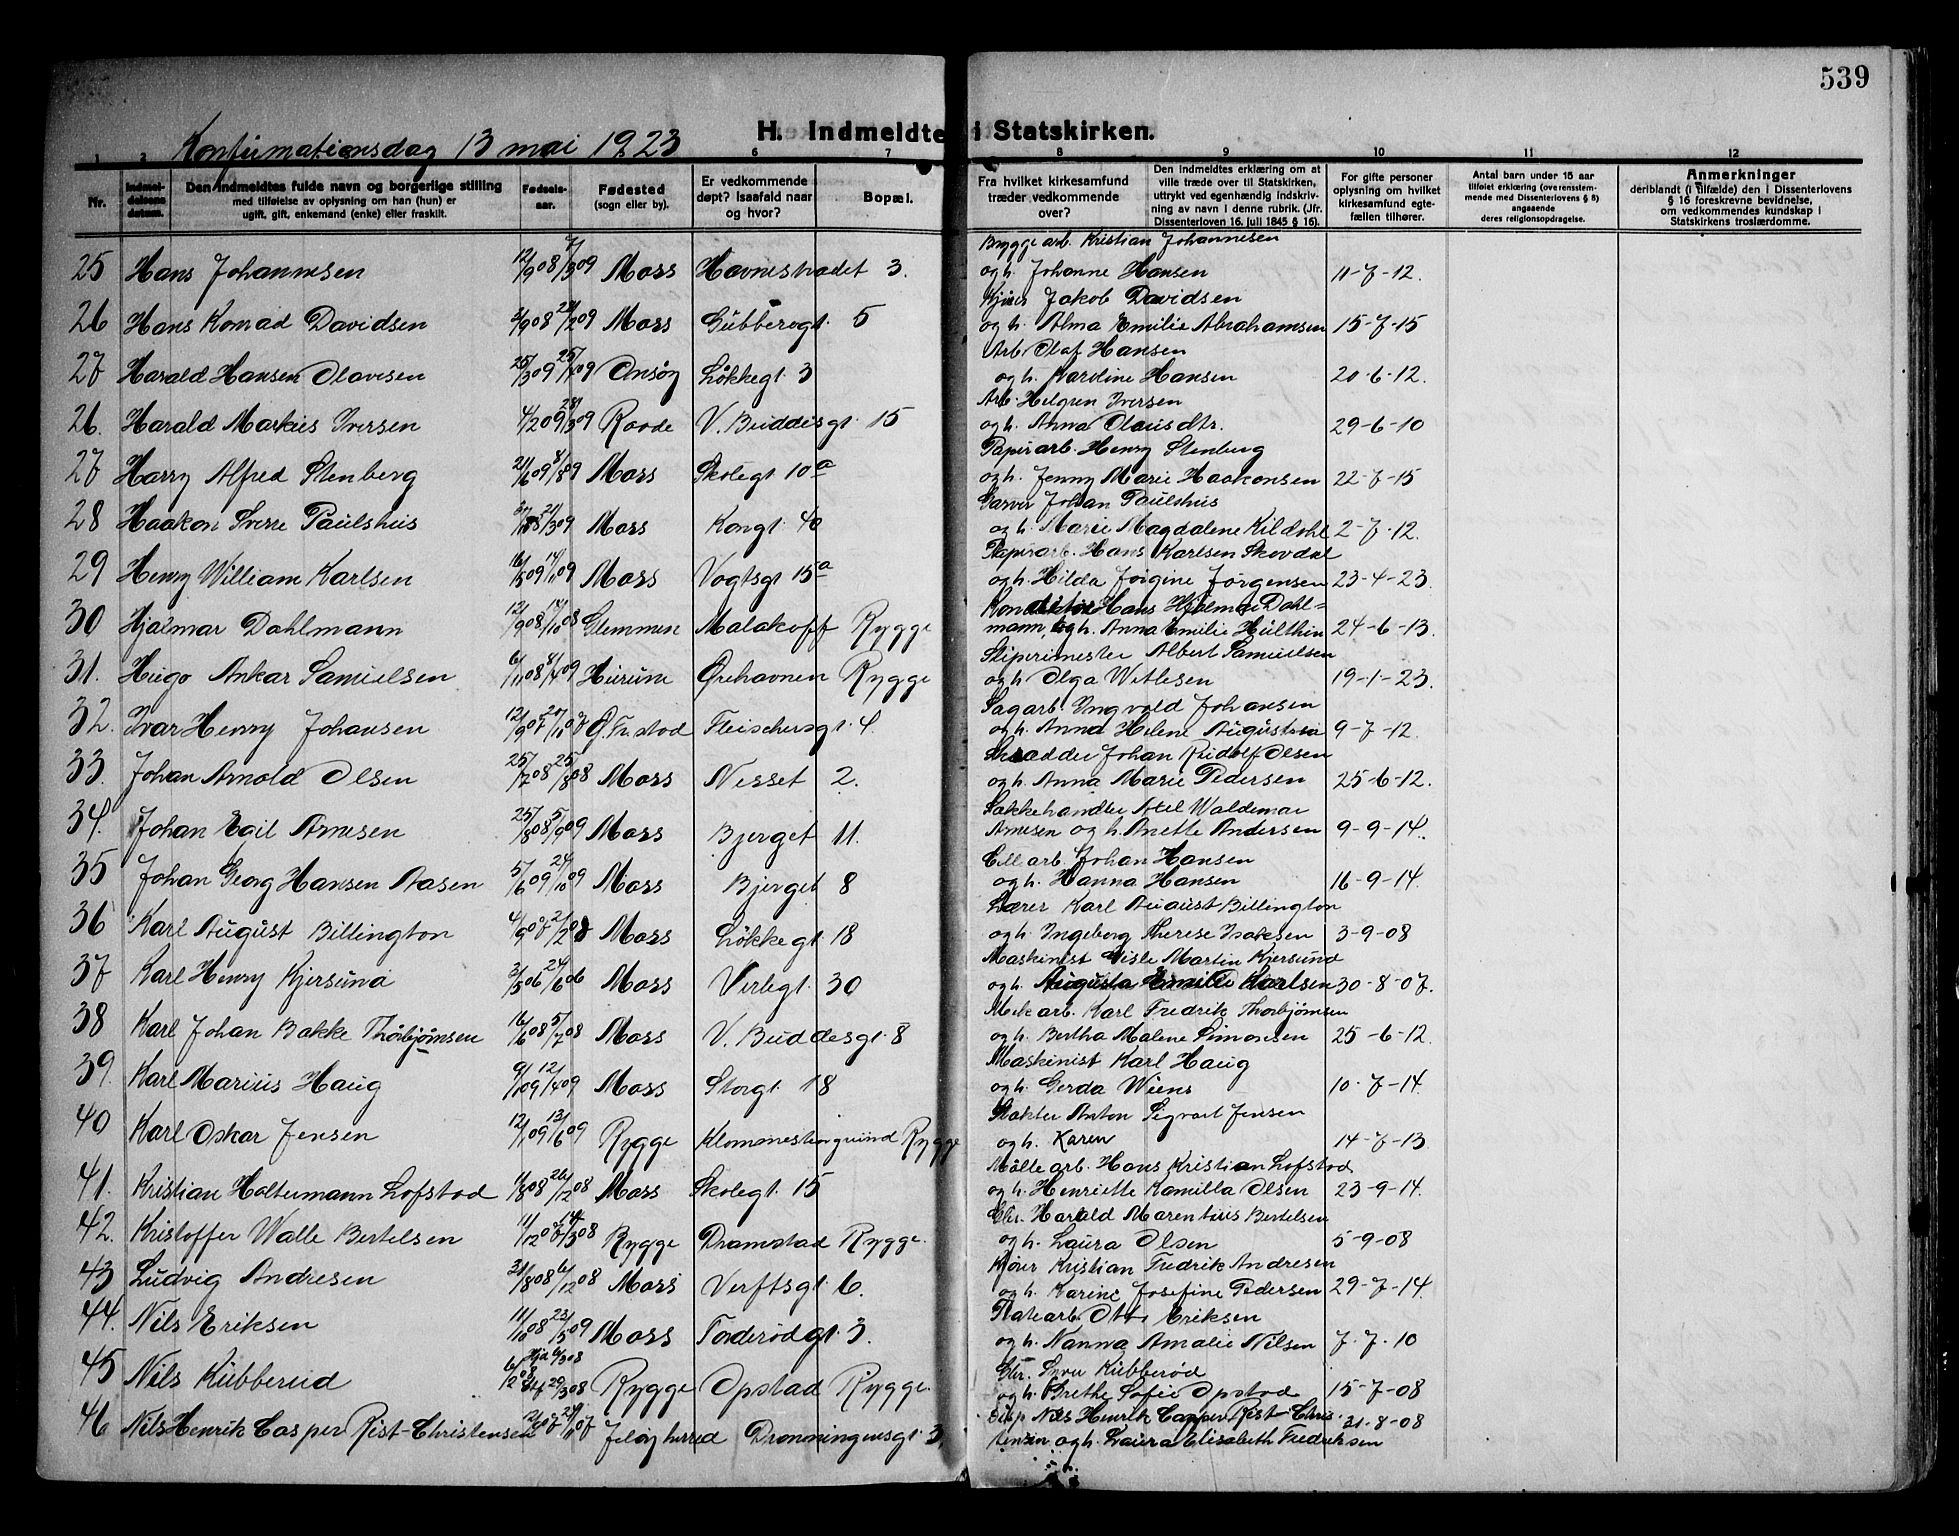 539
H. Indmeldte i Statskirken.
Konfirmationsdag 13 mai 1923
1 2 6 7 8 9 10 11 12
Nr.
Indmeldelsens datum.
Den indmeldtes fulde navn og borgerlige stilling
med tilføielse av oplysning om han (hun) er
ugift, gift, enkemand (enke) eller fraskilt.
Fødselsaar.
Fødested
(sogn eller by).
Er vedkommende
døpt? Isaafald naar
og hvor?
Bopæl.
Fra hvilket kirkesamfund
træder vedkommende
over?
Den indmeldtes erklæring om at
ville træde over til Statskirken,
uttrykt ved egenhændig indskrivning
av navn i denne rubrik. (Jfr.
Dissenterloven 16. juli 1845 § 16).
For gifte personer
oplysning om hvilket
kirkesamfund egtefællen
tilhører.
Antal barn under 15 aar
tilføiet erklæring (overensstemmende
med Dissenterlovens § 8)
angaaende
deres religionsopdragelse.
Anmerkninger
deriblandt (i tilfælde) den i Dissenterlovens
§ 16 foreskrevne bevidnelse,
om vedkommendes kundskap i
Statskirkens troslærdomme.
Brygge arb. Kristian Johannesen
25 Hans Johannesen 12/9 08 7/3 09 Moss Havnestrædet 3. og h. Johanne Hansen 11-7-12.
Kjører Jakob Davidsen
26 Hans Konrad Davidsen 3/9 08 Moss Gubberogt. 5 og h. Alma Emilie Abrahamsen 15-7-15
Arb. Olaf Hansen
27 Harald Hansen Olavesen 25/3 09 Onsøy Løkkegt. 3 og h. Karoline Hansen 20-6-12.
Arb. Helgun Iversen
26. Harald Markus Iversen 4/2 09 28/3 09 Raade V. Buddesgt. 15 og h. Anna Olausdtr. 29-6-10
Papirarb. Henry Stenberg
27 Harry Alfred Stenberg 21/6 09 8/8 09 Moss Skolegt 10a og h. Jenny Marie Haakonsen 22-7-15
Garver Johan Paulshus
28 Haakon Sverre Paulshus 21/3 09 Moss Kongt. 40 og h. Marie Magdalene Kildahl 2-7-12.
Papirarb. Hans Karlsen Skovdal
29 Henry William Karlsen 16/5 09 14/11 09 Moss Vogtsgt 15a og h. Hilda Jørgine Jørgensen 23-4-23.
Konditor Hans Hjalmar Dahl-
30 Hjalmar Dahlmann 12/9 08 Glemmen Malakoff Rygge mann, og h. Anna Emilie Hülthin 24-6-13.
Sliperimester Albert Samuelsen
31. Hugo Ankar Samuelsen 6/11 08 4/4 09 Hurum Ørehavnen Rygge og h. Olga Wetlesen 19-1-23.
Sagarb. Yngvald Johansen
32. Ivar Henry Johansen 12/9 07 Ø. Fr.stad Fleischersgt. 4. og h. Anna Helene Augustsen 9-7-12.
Skrædder Johan Rudolf Olsen
33. Johan Arnold Olsen 25/7 08 25/8 08 Moss Nesset 2. og h. Anna Marie Pedersen 25-6-12.
Sakkehandler Axel Waldemar
34. Johan Egil Arnesen 25/8 08 5/9 09 Moss Bjerget 11. Arnesen og h. Anette Andersen 9-9-14.
Cell arb. Johan Hansen
35 Johan Georg Hansen Aasen 5/6 09 24/10 09 Moss Bjerget 8 og h. Hanna Hansen 16-9-14.
Lærer Karl August Billington
36 Karl August Billington 4/9 07 2/2 08 Moss Løkkegt 18 og h. Ingeborg Therese Isaksen 3-9-08
Maskinist Gisle Martin Kjersund
37 Karl Henry Kjersund 3/5 06 24/6 06 Moss Verlegt. 30 og h. Augusta Emilie Karlsen 30-8-07.
Mek arb. Karl Fredrik Thorbjørnsen
38 Karl Johan Bakke Thorbjørnsen 16/6 08 5/7 08 Moss V. Buddesgt. 8 og h. Bertha Malene Simonsen 25-6-12.
Maskinist Karl Haug
39. Karl Marius Haug 9/1 09 12/4 09 Moss Storgt. 18 og h. Gerda Wiens 10-7-14.
Slakter Anton Sigvart Jensen
40 Karl Oskar Jensen 12/1 09 13/6 09 Rygge Klommestengrund Rygge og h. Karen 14-7-13
Mølle arb. Hans Kristian Lofstad
41. Kristian Holtermann Lofstad 1/8 08 26/12 08 Moss Skolegt. 15 og h. Henriette Kamilla Olsen 23-9-14.
Gbr. Harald Marentius Bertelsen
42. Kristoffer Walle Bertelsen 11/12 07 Rygge Dramstad Rygge. og h. Laura Olsen 5-9-08
Kjører Kristian Fredrik Andresen
43 Ludvig Andresen 31/8 08 6/12 08 Moss Verftsgt. 6. og h. Karine Josefine Pedersen 29-7-14.
Platearb. Otto Eriksen
44. Nils Eriksen 11/10 08 23/5 09 Moss Torderødgt. 3. og h. Nanna Amalie Nilsen 7-7-10
Gbr. Syver Kubberød
45 Nils Kubberud 29/3 08 Rygge Opstad Rygge. og h. Grethe Sofie Opstad 15-7-08
Disp Nils Henrik Casper Rist-Chris-
46 Nils Henrik Casper Rist-Christensen Jeløy herred Dronningensgt. 3. 31-8-08
tensen og h. Laura Elisabeth Fredriksen